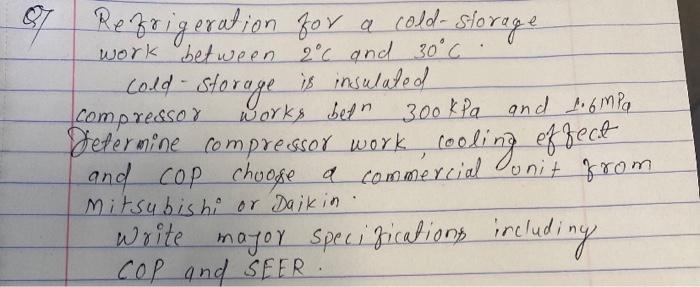 Q7 Refrigeration for a cold-storage
work between 2°C and 30°C.
cold-storage is insulated
compressor works betn 300 kPa and 1.6 MPa
Determine compressor work, cooling effect
and COP choose a commercial unit from
Mitsubishi or Daikin.
Write major specifications including
COP and SEER.